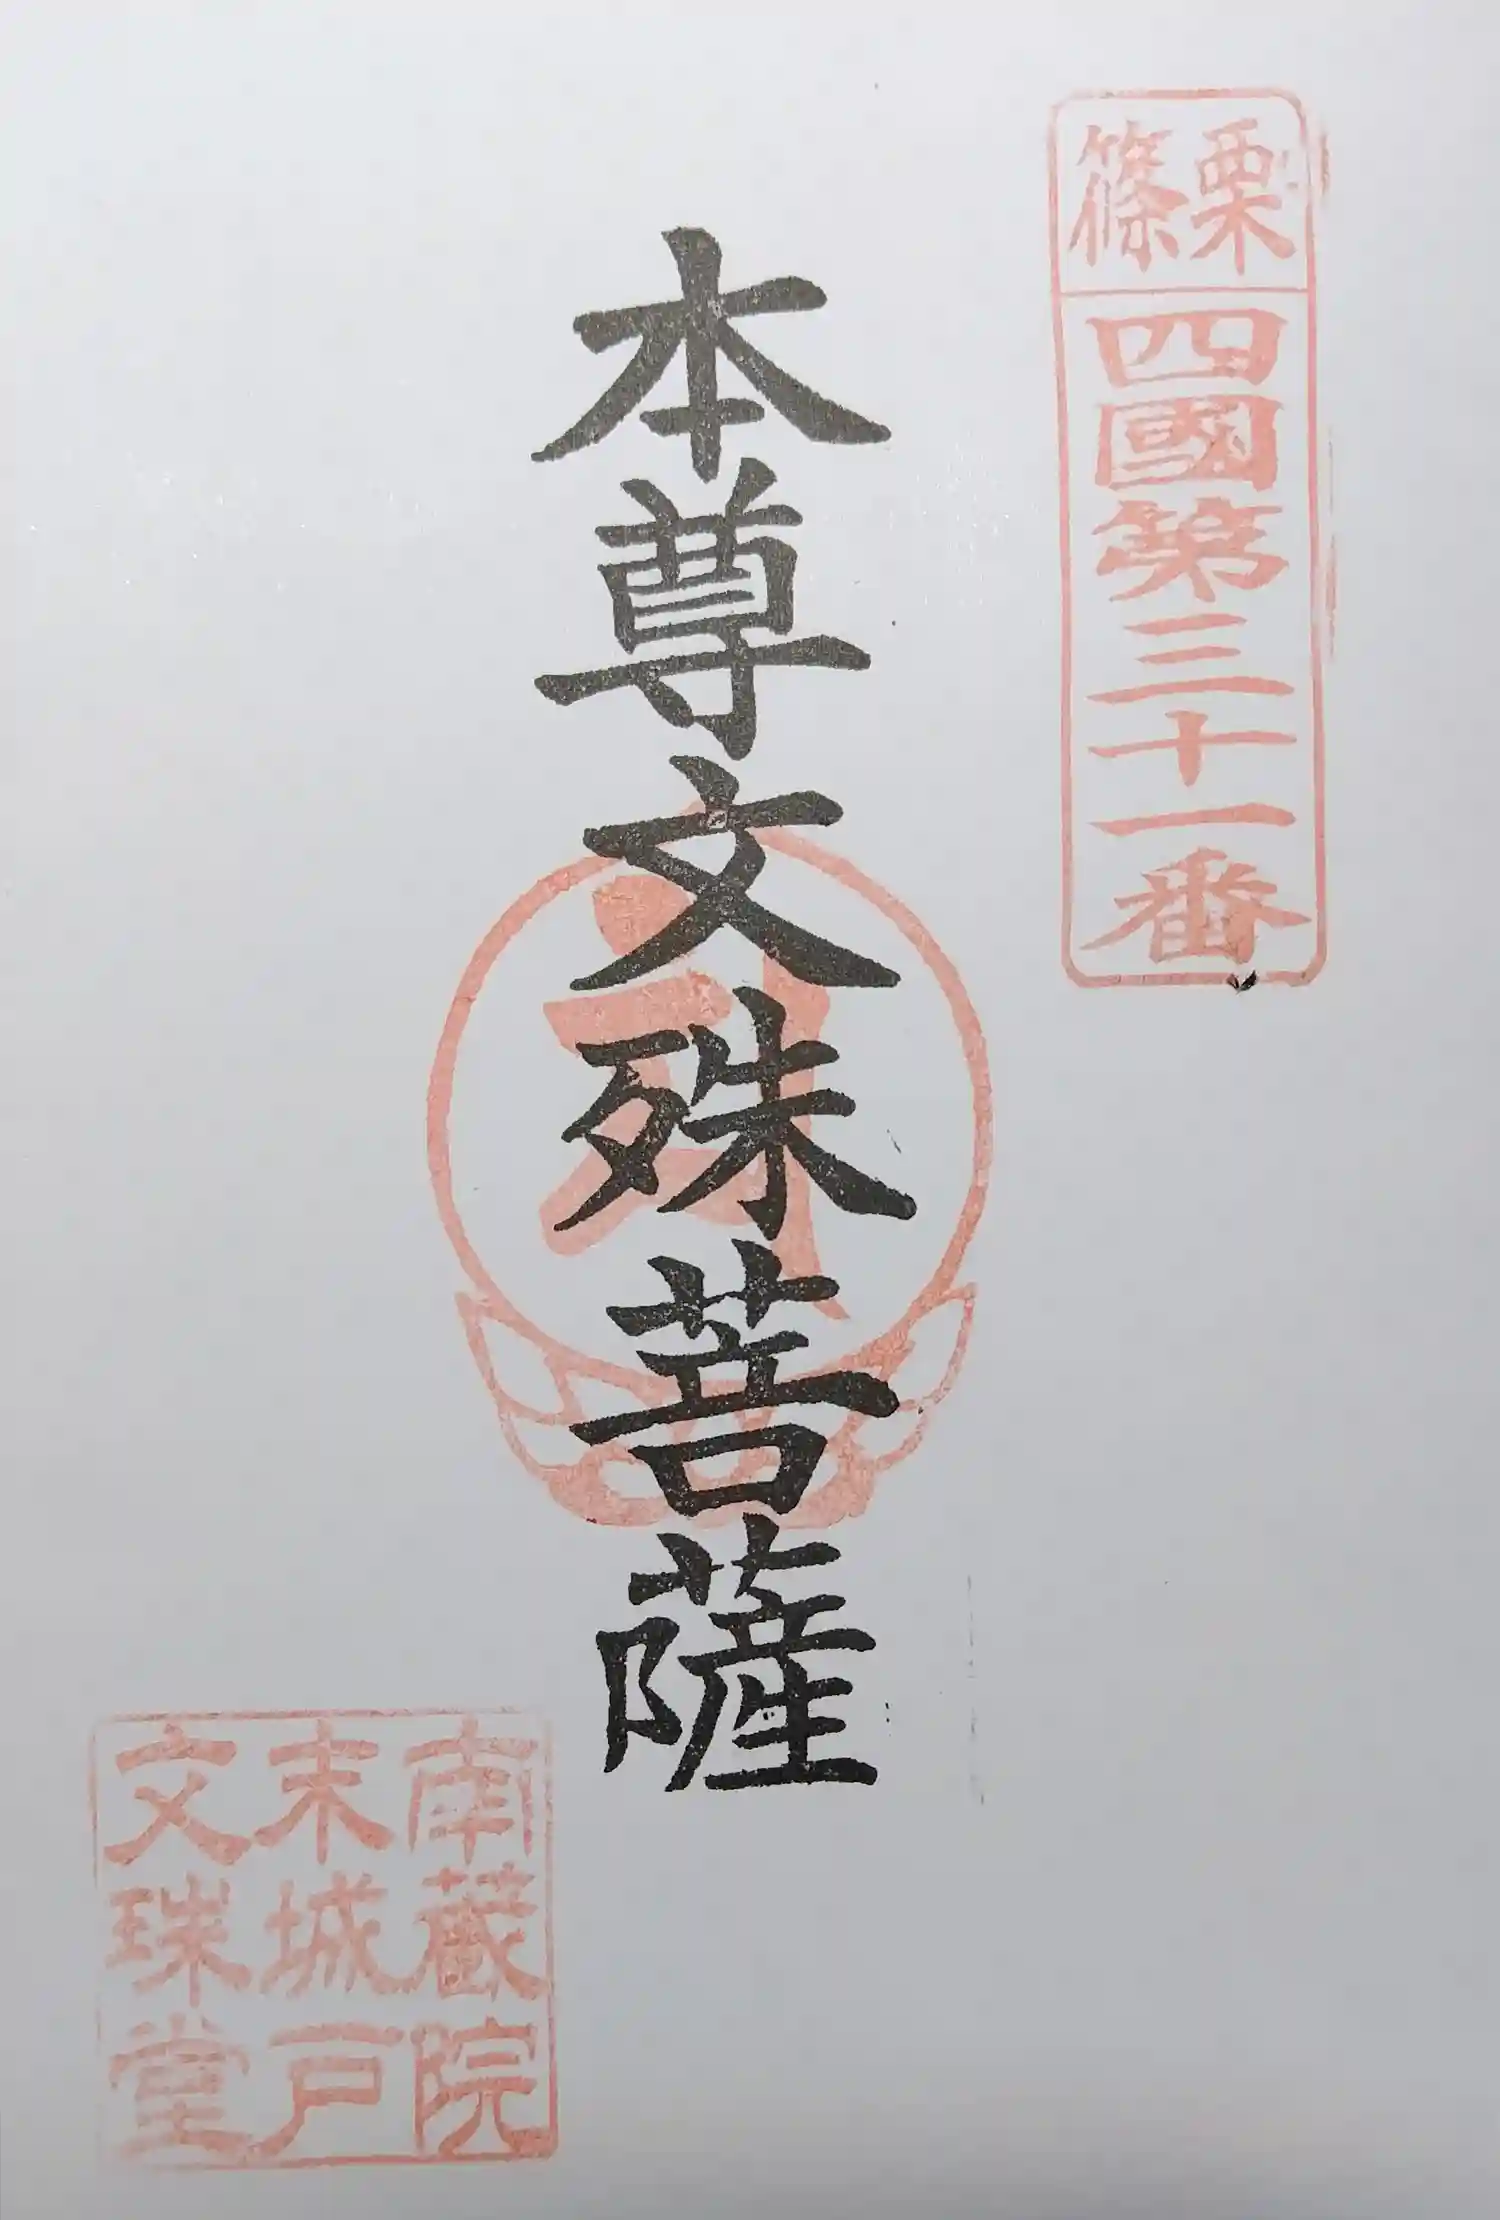 篠栗
四國第三十一番
本尊文殊菩薩
南蔵院
末城戸
文珠堂